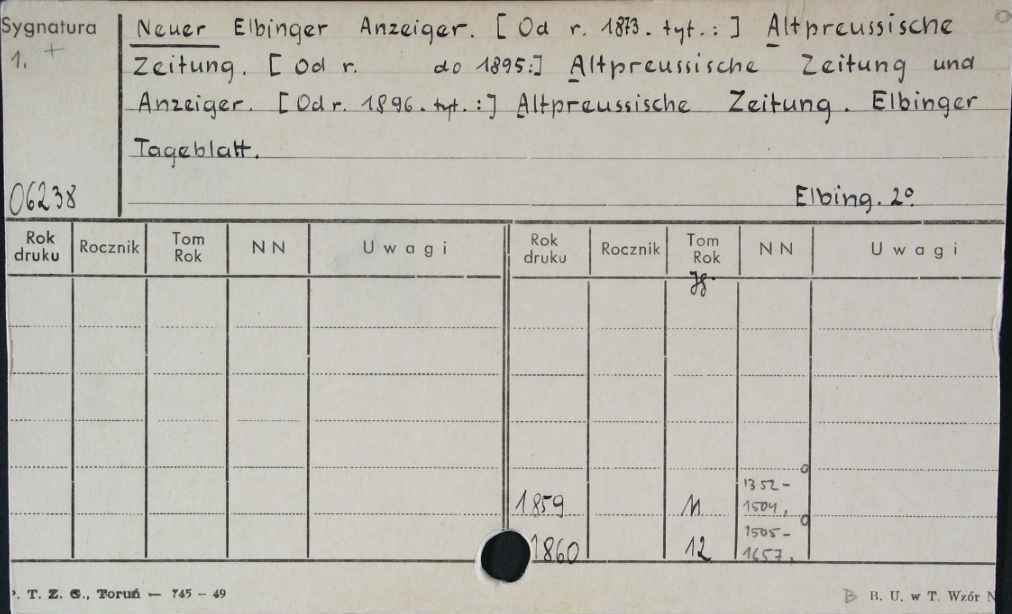 Sygnatura
1. +
06238
Neuer Elbinger Anzeiger. [Od r. 1873. tyt.:] Altpreussische
Zeitung. [Od r. do 1895:] Altpreussische Zeitung und
Anzeiger. [Od r. 1896. tyt.:] Altpreussische Zeitung. Elbinger
Tageblatt.
Elbing. 2º
Rok druku Rocznik Tom Rok NN Uwagi Rok druku Rocznik Tom Rok NN Uwagi
Jg.
1859 11 1352-1504.
1860 12 1505-1657.
. T. Z. G., Toruń — 745 - 49
B. U. w T. Wzór N